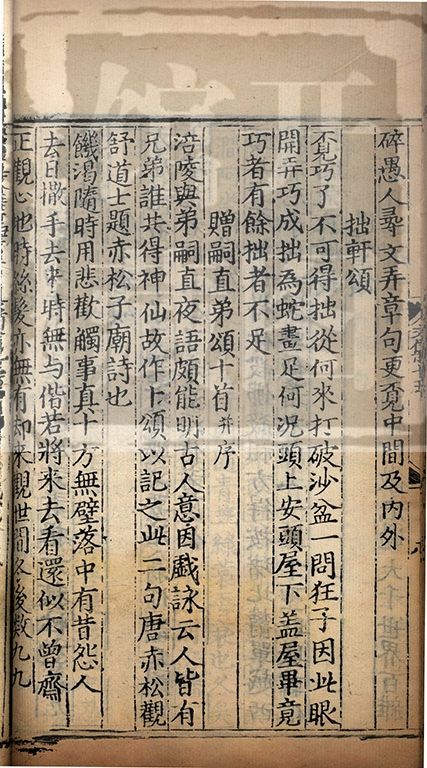 碎愚人尋文弄章句更覔中間及内外
拙軒頌
覔巧了不可得拙從何來打破沙盆一問狂子因此眼
開弄巧成拙為蛇畫足何況頭上安頭屋下盖屋畢竟
巧者有餘拙者不足
贈嗣直弟頌十首并序
涪陵與弟嗣直夜語頗能明古人意因戯詠云人皆有
兄弟誰共得神仙故作十頌以記之此二句唐赤松觀
舒道士題赤松子廟詩也
饑渴隨時用悲歡觸事真十方無壁落中有昔怨人
去日撒手去来時無与偕若將来去看還似不曾齋
正觀心地時絲髮亦無有却来觀世間冬後數九九